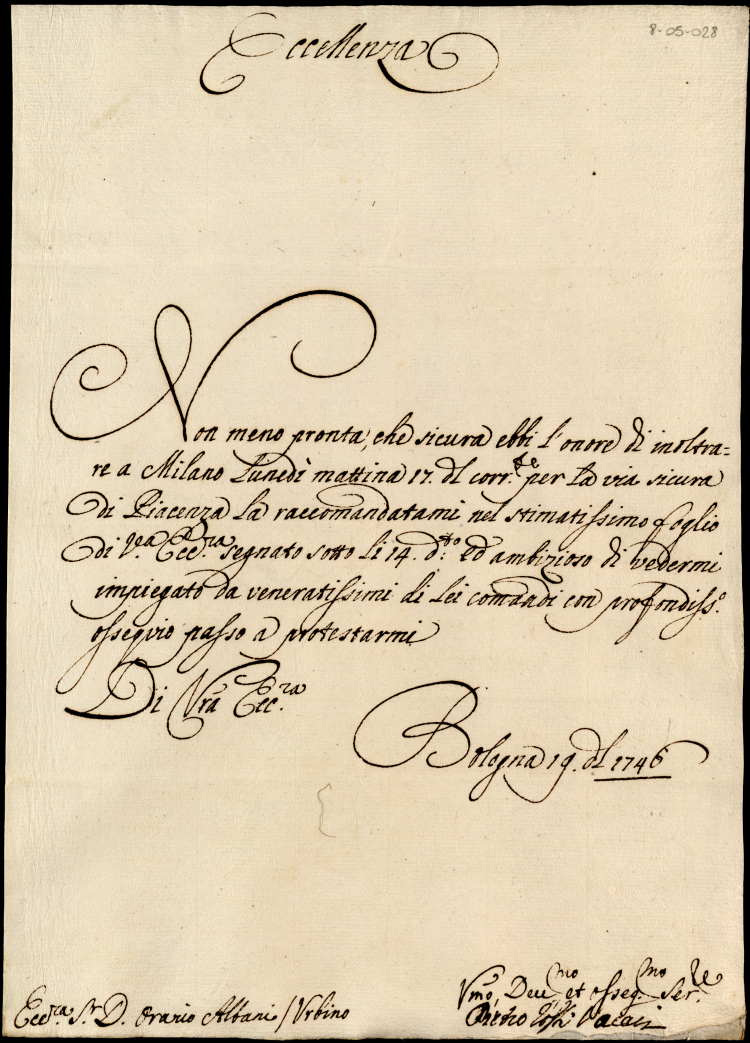 8-05-028
Eccellenza
Non meno pronta, che sicura ebbi l'onore di inoltra=
re a Milano Lunedì mattina 17. dl corr.te per la via sicura
di Piacenza la raccomandatami nel stimatissimo foglio
di Vra Ecc.za segnato sotto li 14. d.to ed ambizioso di vedermi
impiegato da veneratissimi di Lei comandi con profondiss.o
ossequio passo a protestarmi
Di Vra Ecc.za
Bologna 19. dl 1746
Vmo, Deu.mo et osseq.mo Ser.re
Ecc.za Sr D. Orazio Albani / Urbino
Pietro